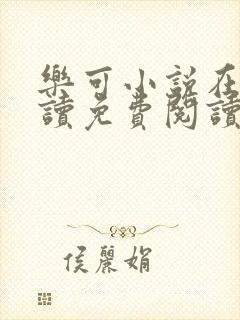 樂可小說在
讀免費閱讀
侯麗娟